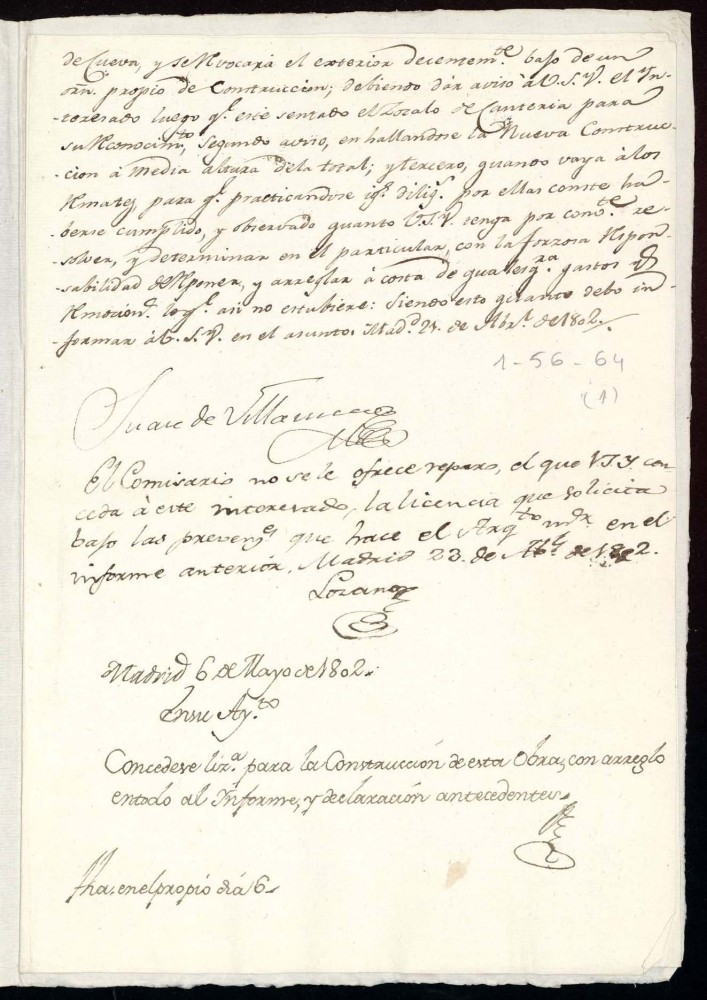 de Cueva, y se Rvocará el exterior decentem.te bajo de un
orn. propio de Construccion; debiendo dár aviso à V.S.Y. el Yn-
-teresado luego q.e esté sentado el Zocalo de Canteria para
su Rconocim.to, Segundo aviso, en hallandose la Nueva Construc-
-cion á media altura dela total; y tercero, quando vaya à los
Rmates, para q.e practicandose ig.s dilig.s por ellas conste ha-
berse cumplido, y observado quanto V.S.Y. tenga por conv.te re-
solver, y determinar en el particular, con la forzosa Rspon-
-sabilidad de Rponer, y arreglar á costa de qualesq.ra gastos
Rmocion.s lo q.e asi no estubiere: Siendo esto quanto debo in-
-formar à V.S.Y. en el asunto. Mad.d 21. de Abr.l de 1802.
1-56-64
(1)
Juan de Villanueva
El Comisario no se le ofrece reparo, el que V.S.Y. con-
ceda à este interesado, la licencia que solicita
bajo las preven.es que hace el Arq.to mr. en el
informe anterior. Madrid 23. de Ab.l de 1802.
Lozano
Madrid 6 de Mayo de 1802.
Ensu Ay.to
Concedese liz.a para la Construcción de esta Obra, con arreglo
entodo al Ynforme, y declaración antecedentes.
fha. en el propio día 6.